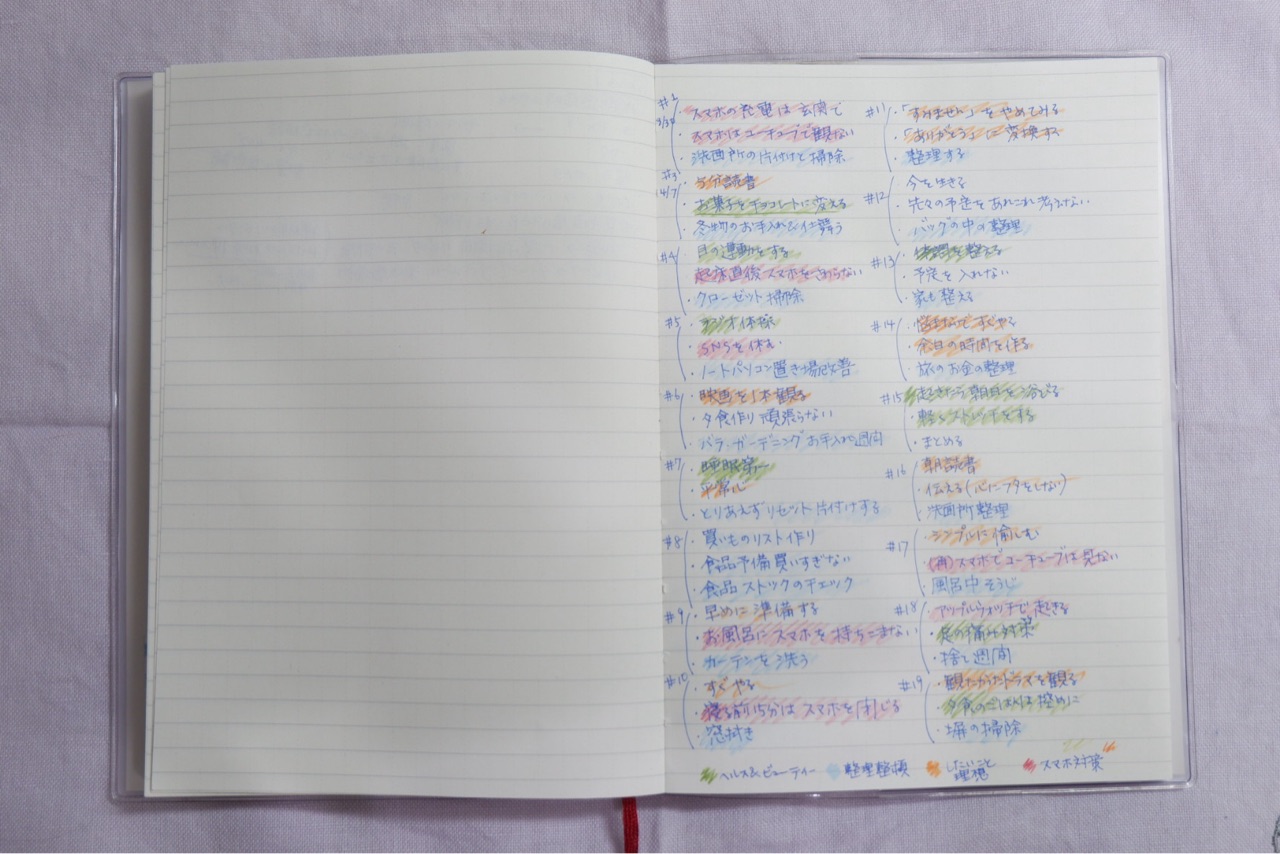 #2
3/31
・スマホの充電は玄関で
・スマホはユーチューブで観ない
・洗面所の片付けと掃除
#3
4/7
・5分読書
・お菓子をチョコレートに変える
・冬物のお手入れ&仕舞う
#4
・目の運動をする
・起床直後スマホをさわらない
・クローゼット掃除
#5
・ラジオ体操
・SNSを休む
・ノートパソコン置き場改善
#6
・映画を1本観る
・夕食作り頑張らない
・バラ・ガーデニングお手入れ週間
#7
・睡眠第一
・平常心
・とりあえずリセット片付けする
#8
・買いものリスト作り
・食品予備買いすぎない
・食品ストックのチェック
#9
・早めに準備する
・お風呂にスマホを持ちこまない
・カーテンを洗う
#10
・すぐやる
・寝る前15分はスマホを閉じる
・窓拭き
#11
・「すみません」をやめてみる
・「ありがとう」に変換する
・整理する
#12
・今を生きる
・先々の予定をあれこれ考えない
・バッグの中の整理
#13
・体調を整える
・予定を入れない
・家も整える
#14
・悩まないですぐやる
・余白の時間を作る
・旅のお金の整理
#15
・起きたら朝日を浴びる
・軽くストレッチをする
・まとめる
#16
・朝読書
・伝える(心にフタをしない)
・洗面所整理
#17
・シンプルに愉しむ
・(再)スマホでユーチューブは見ない
・風呂中そうじ
#18
・アップルウォッチで起きる
・痛み対策
・捨て週間
#19
・観たかったドラマを観る
・夕食のごはんは控めに
・塀の掃除
ヘルス&ビューティー
整理整頓
したいこと
理想
スマホ対策